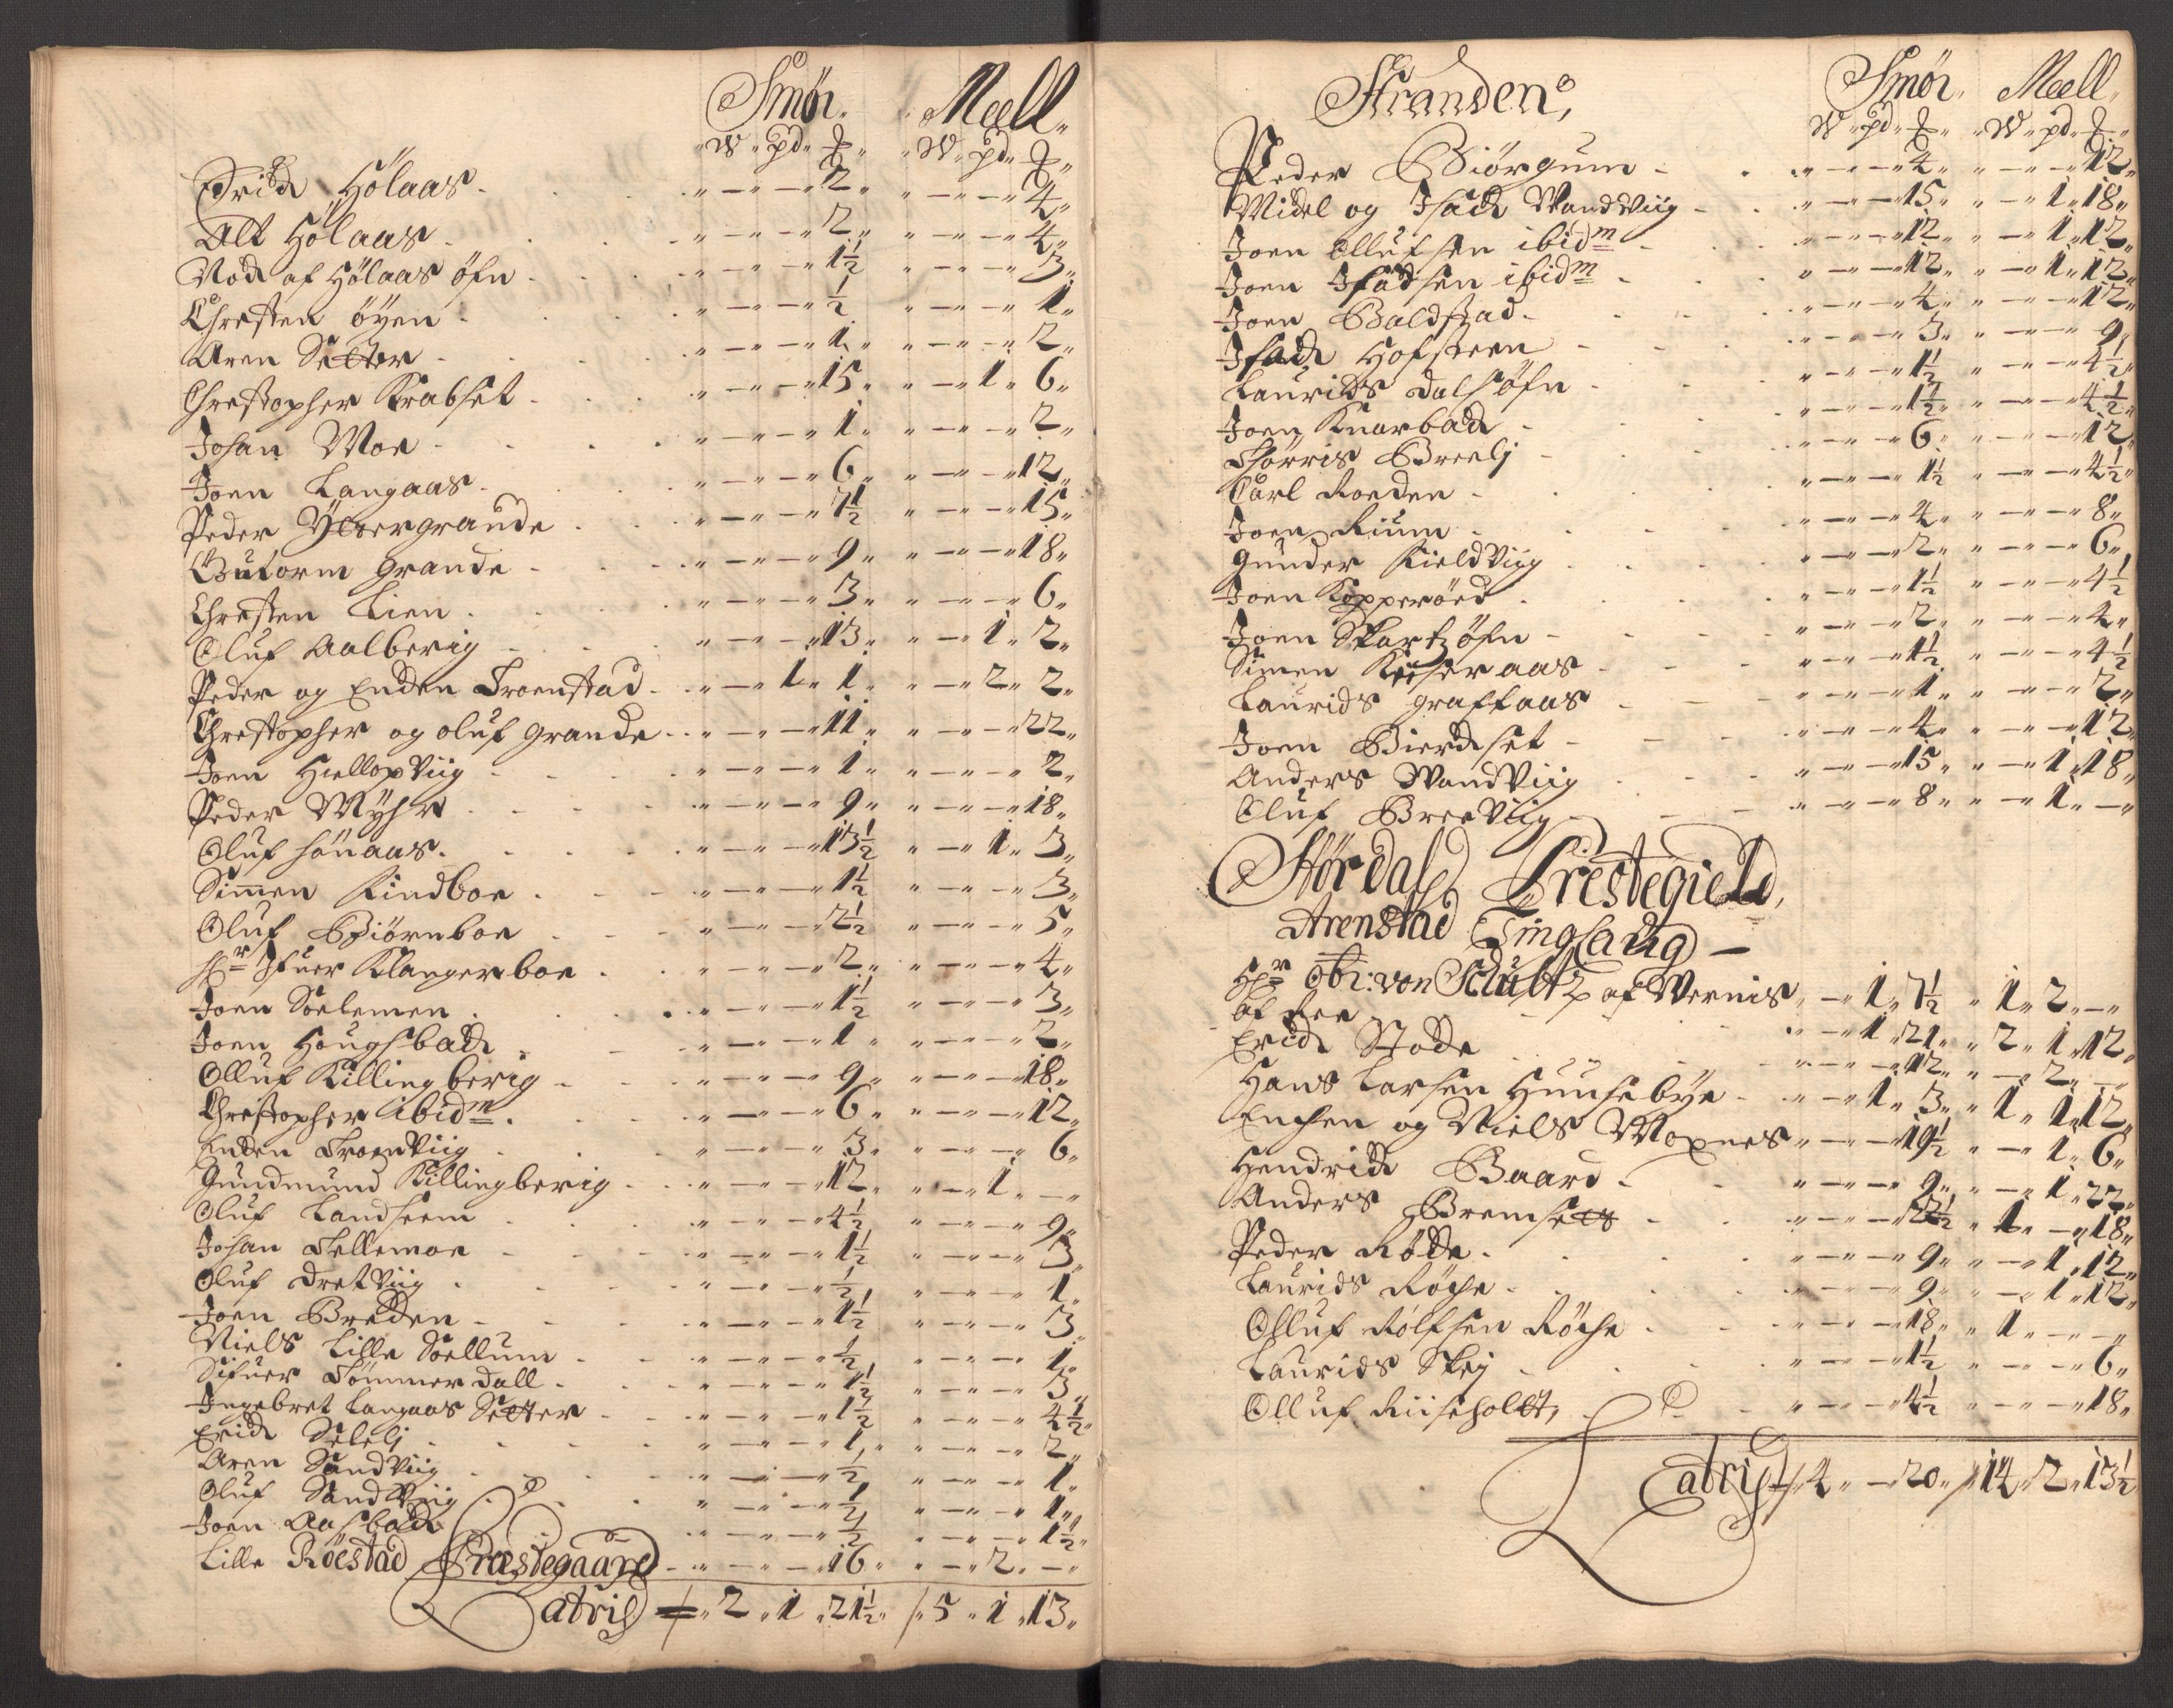 Smør. Meell.
W pd ℔ W pd ℔
Erich Hölaas - - 2 - - 4
Alt Hölaas - - 2 - - 4
Noch af Hölaas öfn - - 1½ - - 3
Chresten öyen - - ½ - - 1
Aren Setter - - 1 - - 2
Chrestopher Krabset - - 15 - 1 6
Johan Moe - - 1 - - 2
Joen Langaas - - 6 - - 12
Peder Yttergrande - - 7½ - - 15
Gutorm Grande - - 9 - - 18
Chresten Lien - - 3 - - 6
Oluf Aalberig - - 13 - 1 2
Peder og Enden Troenstad - 1 1 - 2 2
Chrestopher og oluf grande - - 11 - - 22
Joen Hiellopviig - - 1 - - 2
Peder Myhr - - 9 - - 18
Oluf hönaas - - 13½ - 1 3
Simen Kindboe - - 1½ - - 3
Oluf Biörnboe - - 2½ - - 5
Hr Ifuer Klangerboe - - 2 - - 4
Joen Soelemen - - 1½ - - 3
Joen Hougsbach - - 1 - - 2
Olluf Killingberig - - 9 - - 18
Chrestopher ibidm - - 6 - - 12
Enden Troenviig - - 3 - - 6
Gundmund Killingberig - - 12 - 1 -
Oluf Landseem - - 4½ - - 9
Johan Tellemoe - - 1½ - - 3
Oluf Dretviig - - ½ - - 1
Joen Breden - - 1½ - - 3
Niels Lille Soellum - - ½ - - 1
Sifuer Tömmerdall - - 1½ - - 3
Ingebret Langaas Setter - - 1½ - - 4½
Erich Selelj - - 1 - - 2
Aren Sandviig - - ½ - - 1
Oluf Sandviig - - ½ - - 1
Joen Aasbach - - ½ - - 1½
Lille Röestad Præstegaard - - 16 - 2 -
Latris 2 1 21½ 5 1 13
Stranden,
Smør. Meell.
W pd ℔ W pd ℔
Peder Biörgum - - 4 - - 12
Michel og Isach Vandviig - - 15 - 1 18
Joen Ollufsen ibidm - - 12 - 1 12
Joen Isachsen ibidm - - 12 - 1 12
Joen Baldstad - - 4 - - 12
Isach Hofsteen - - 3 - - 9
Laurids Dalsöfn - - 1½ - - 4½
Joen Knarbach - - 1½ - - 4½
Thorris Breelj - - 6 - - 12
Carl Roeden - - 1½ - - 4½
Joen Rium - - 4 - - 8
Gunder Kieldviig - - 2 - - 6
Joen Kopperöed - - 1½ - - 4½
Joen Skartzöfn - - 2 - - 4
Simen Kieseraas - - 1½ - - 4½
Laurids graftaas - - 1 - - 2
Joen Bierchset - - 4 - - 12
Anders Vandviig - - 15 - 1 18
Oluf Breeviig - - 8 - 1 -
Størdals Prestegield,
Arenstad Tinglaug -
Hr Obr: von Schultz af Wernis - 1 7½ 1 2 -
af Ree - 1 21 2 1 12
Erich Stocke - - 12 - 2 -
Hans Larsen Huusebye - 1 3 1 1 12
Enchen og Niels Moxnes - - 19½ - 1 6
Hendrich Baard - - 9 - 1 22
Anders Bremsett - - 22½ 1 - 18
Peder Röcke - - 9 - 1 12
Laurids Röche - - 9 - 1 12
Olluf Rolfsen Röche - - 18 1 - -
Laurids Skej - - 1½ - - 6
Olluf Riiseholtt, - - 4½ - - 18
Latris 4 - 20 14 2 13½